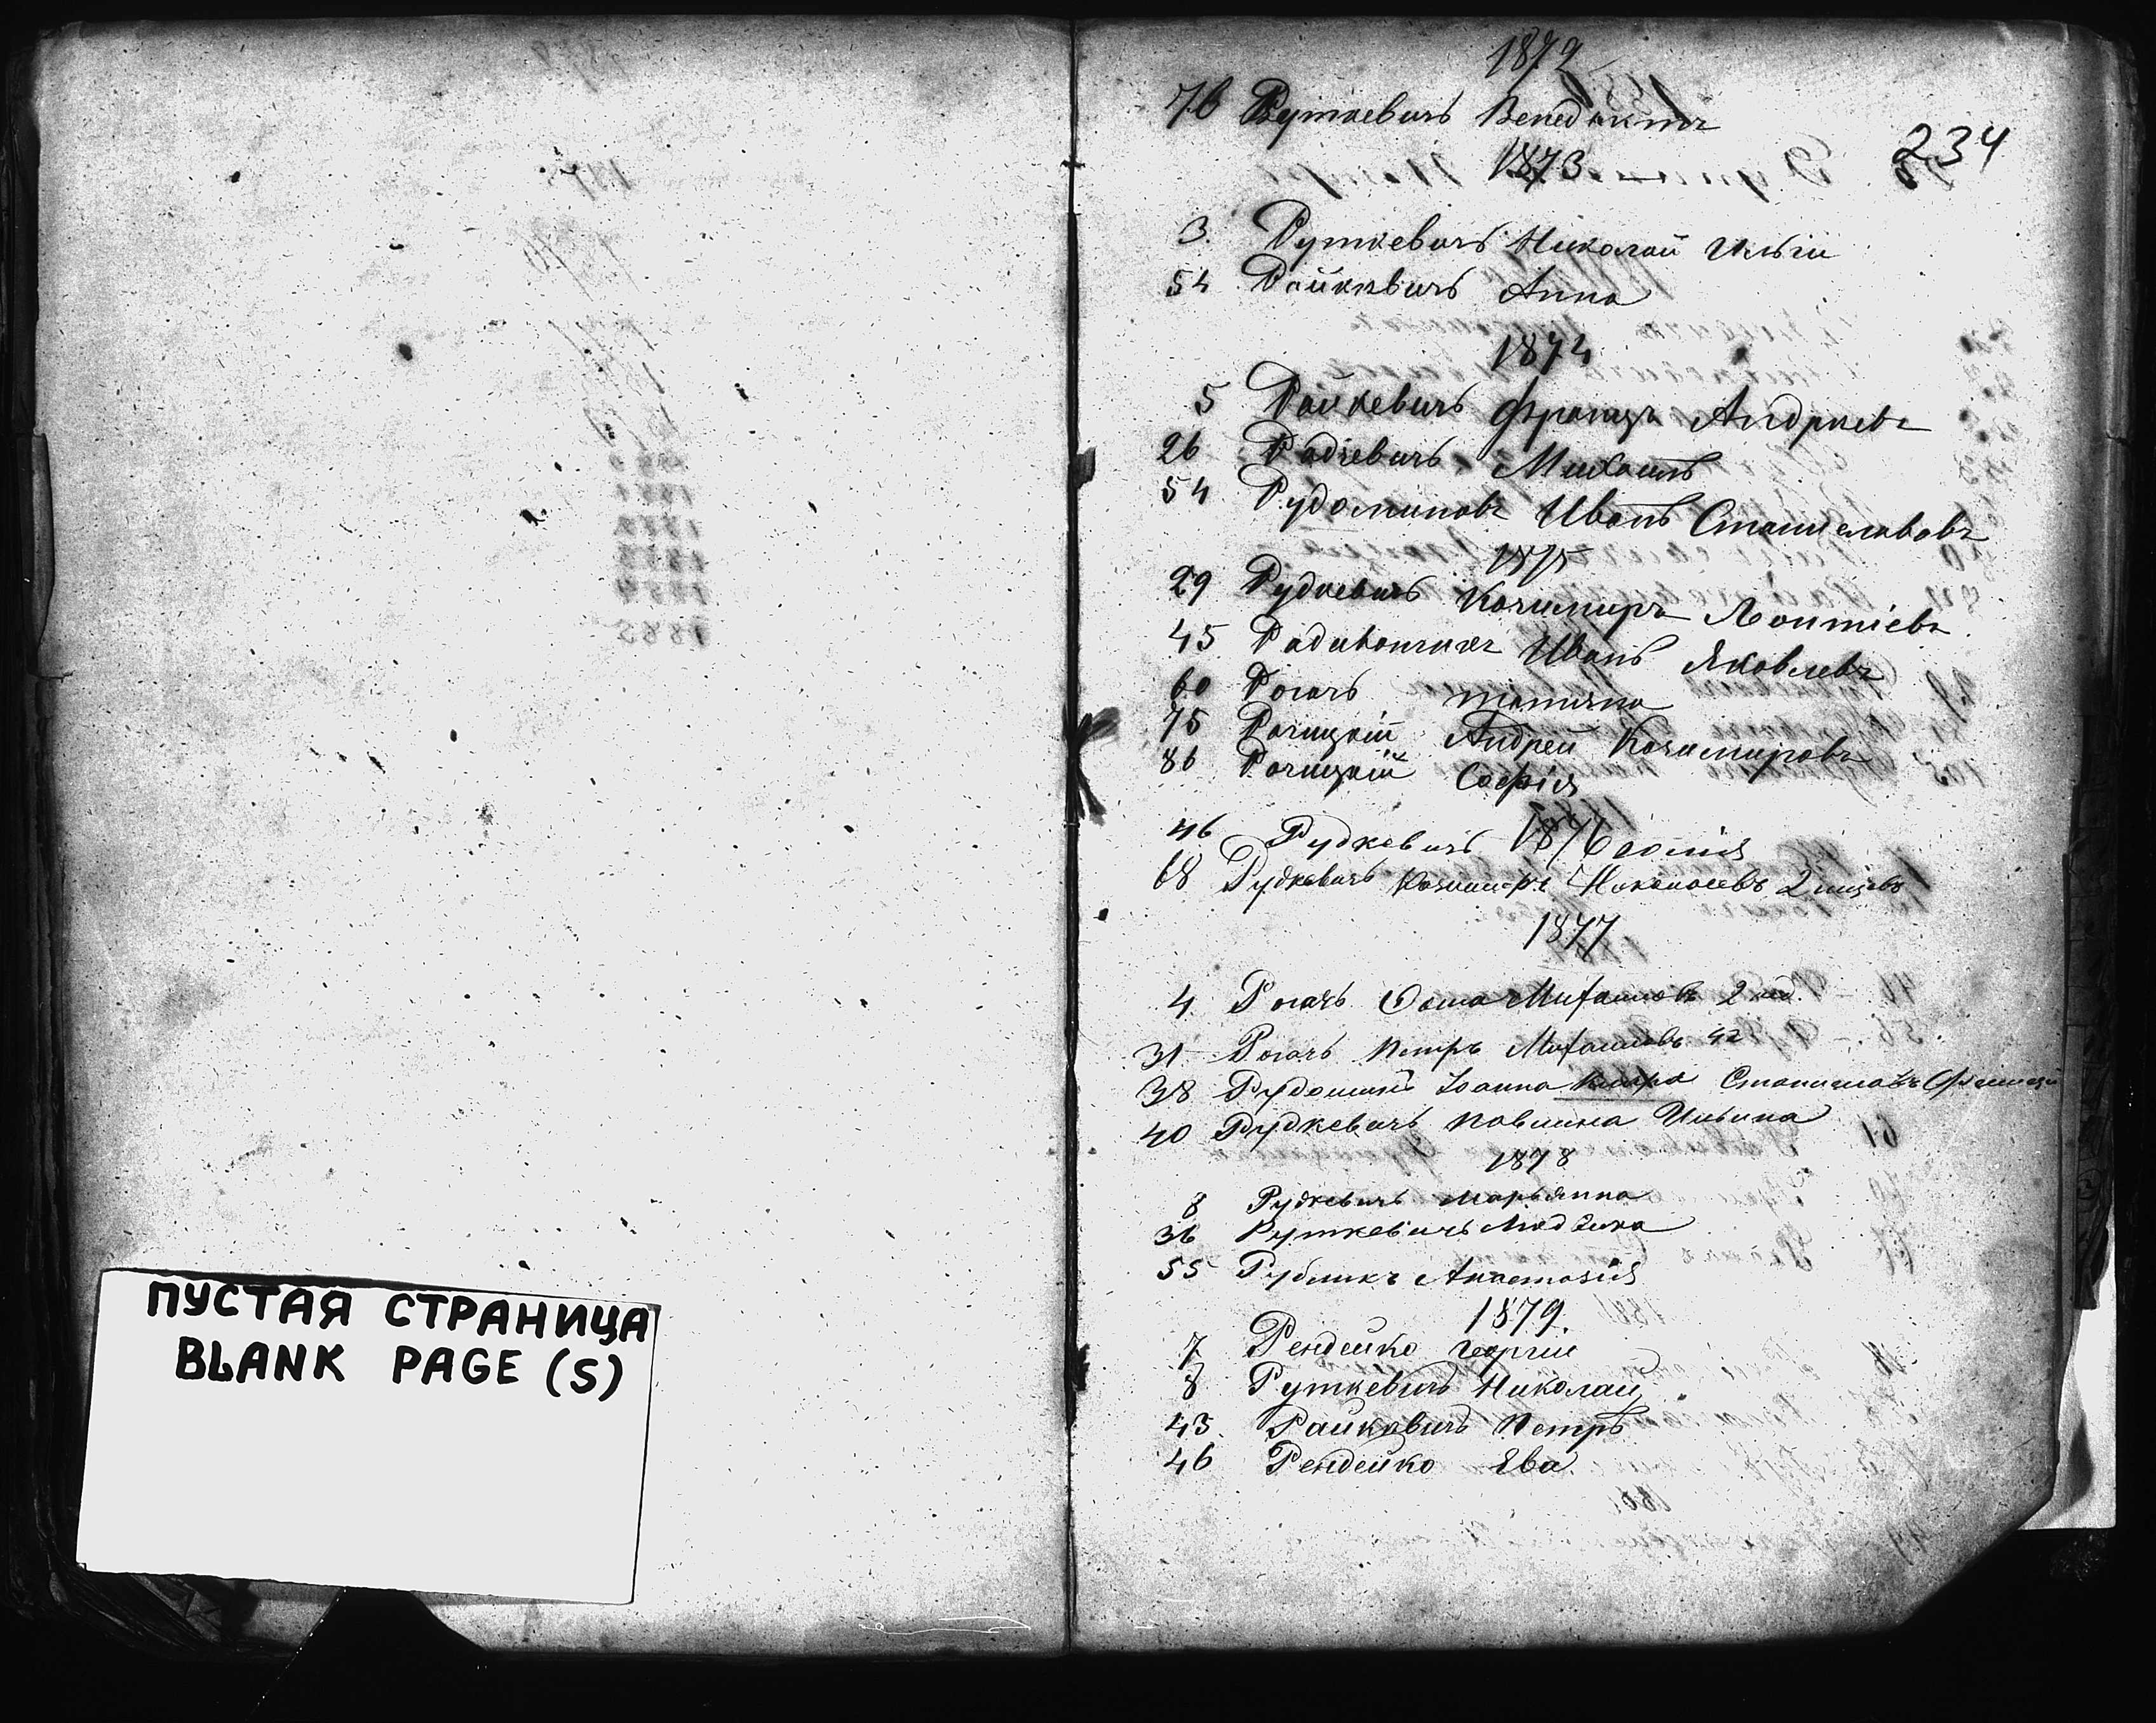 ПУСТАЯ СТРАНИЦА
BLANK PAGE (S)
1872
76 Руткевичъ Венедиктъ
234
1873
3. Руткевичъ Николай Ильін
54 Райкевичъ Анна
1874
5 Райкевичъ Францъ Андреевъ
26 Радкевичъ Михаилъ
54 Рудоминовъ Иванъ Станиславовъ
1875
29 Рудкевичъ Казимиръ Леонтіевъ
45 Иванъ Яковлевъ
60 Рогачъ Татіяна
75 Рачицкій Андрей Казимировъ
86 Рачицкій Софія
1876
46 Рудкевичъ
68 Рудкевичъ Казимиръ 2
1877
4. Рогачъ Ѳома Михаиловъ 2 нед.
31 Рогачъ Петръ Михаиловъ 42
38 Рудоминъ Іоанна Станиславъ
40 Рудкевичъ Павлина Ильина
1878
8 Рудкевичъ Марьянна
36 Руткевичъ Людвика
55 Рубликъ Анастасія
1879.
7 Рендейко Георгій
8 Руткевичъ Николай
43. Райкевичъ Петръ
46 Рендейко Ева